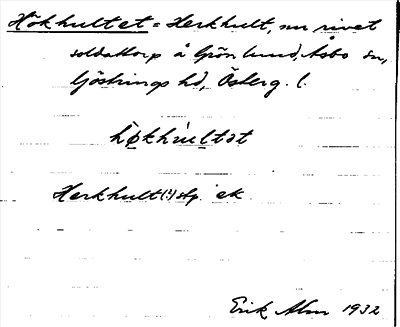 Hökhultet = Herkhult, nu rivet
soldattorp å Grönlund, Åsbo sn,
Göstrings hd, Österg. l.
hö̀khúltət
Herkhult (!) stp. ek
Erik Alm 1932